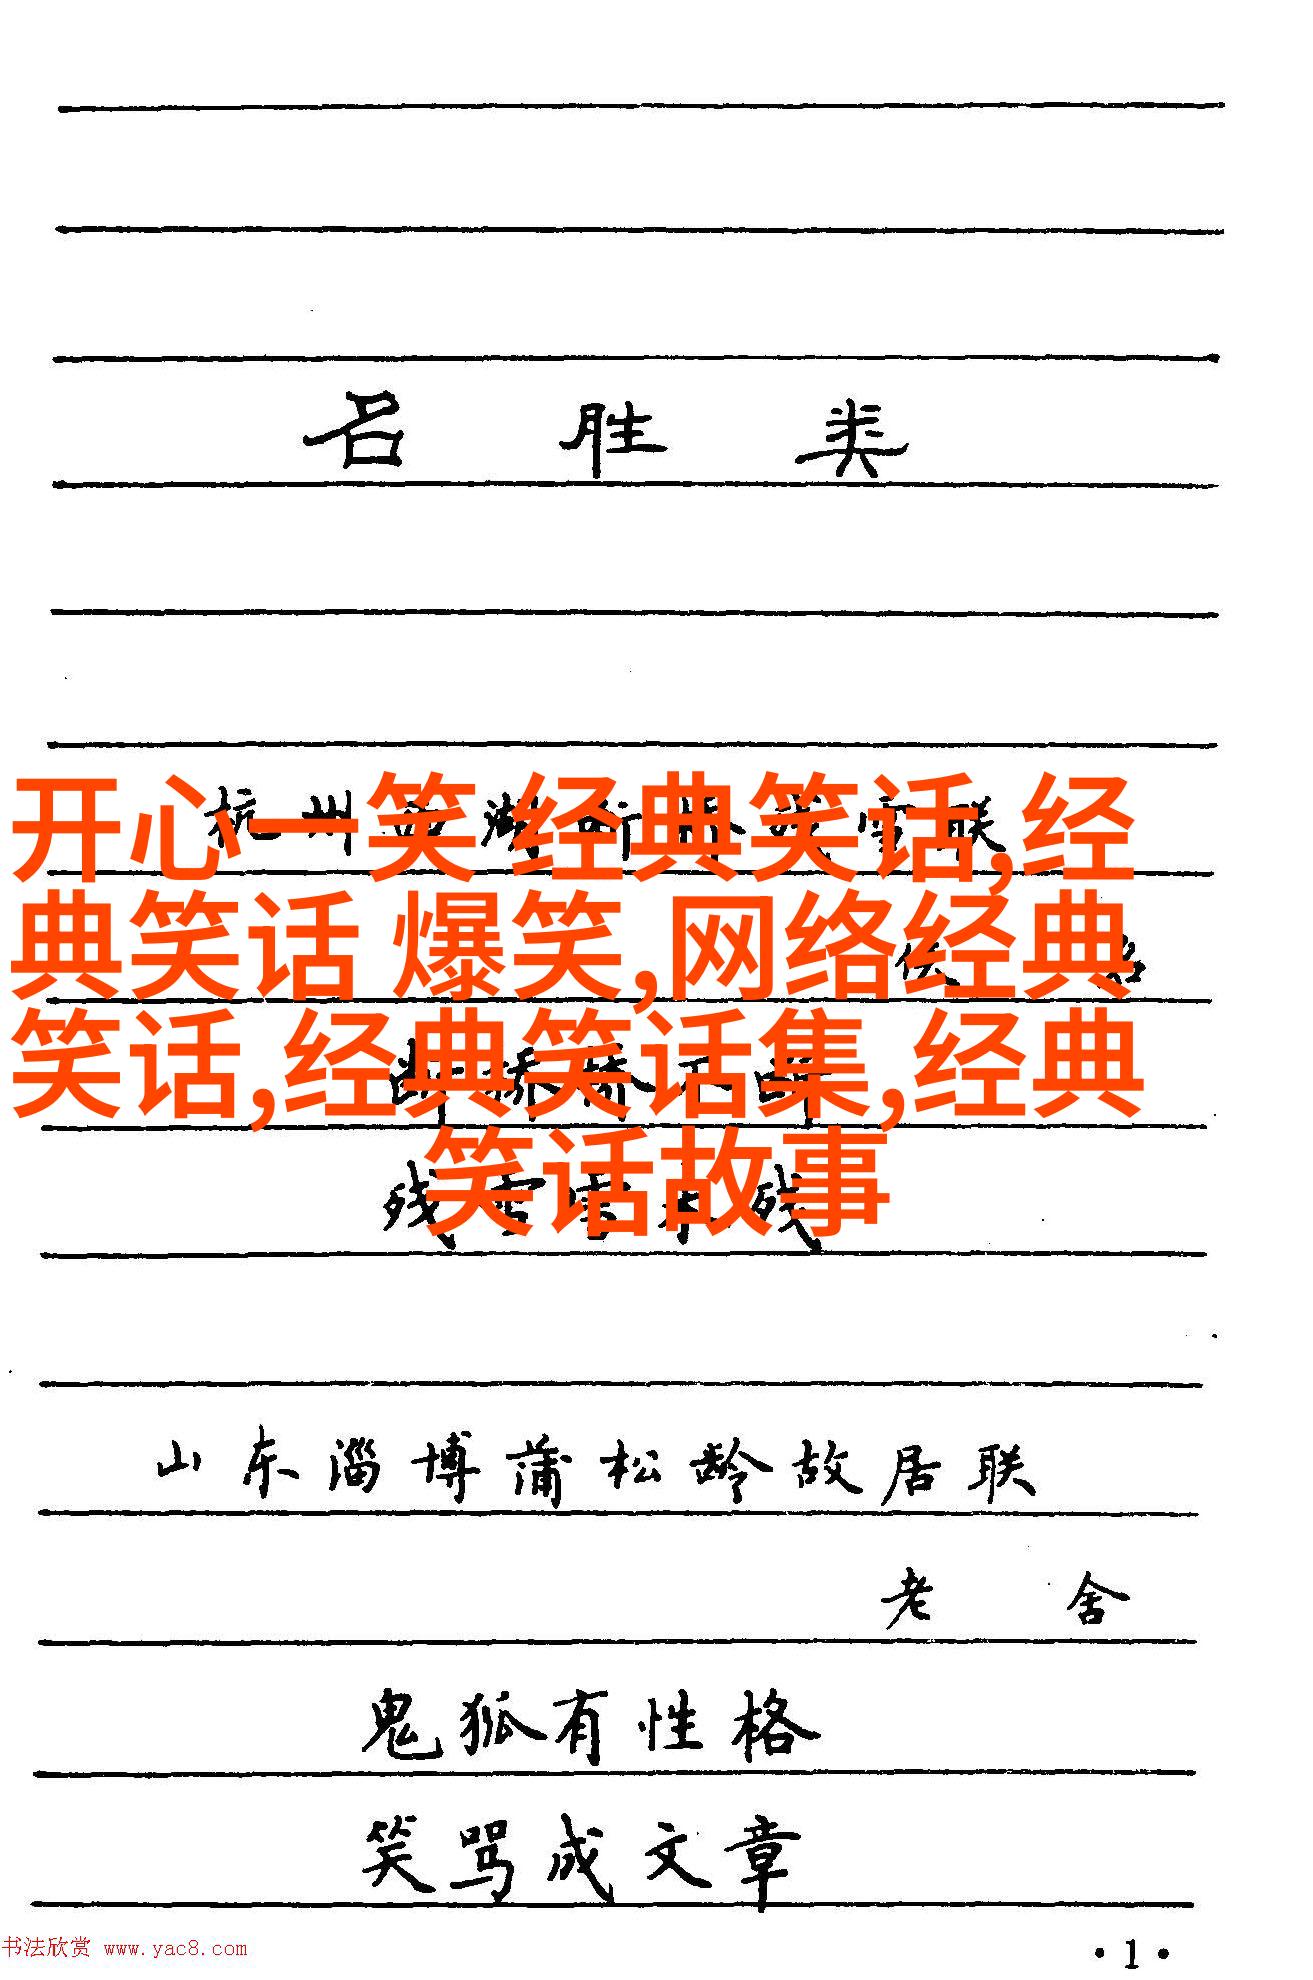 名胜类
杭州西湖断桥残雪联
佚名
开心一笑 经典笑话,经
典笑话 爆笑,网络经典
笑话,经典笑话集,经典
笑话故事
断桥桥不断
残雪雪未残
山东淄博蒲松龄故居联
老舍
鬼狐有性格
笑骂成文章
书法欣赏 www.yac8.com
·1·